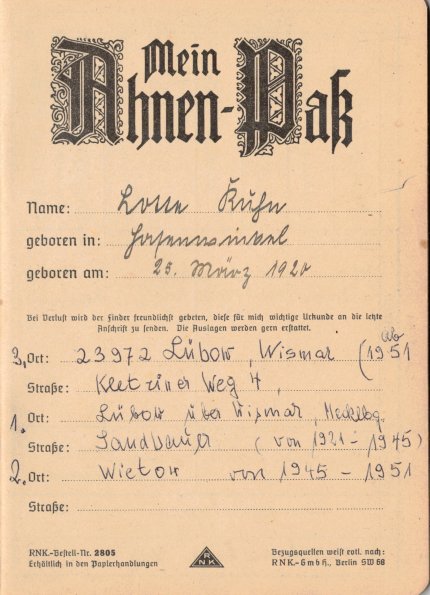 Mein
Ahnen-Paß
Name: Lotte Kuhn
geboren in: Hasenwinkel
geboren am: 25. März 1920
Bei Verlust wird der Finder freundlichst gebeten, diese für mich wichtige Urkunde an die letzte
Anschrift zu senden. Die Auslagen werden gern erstattet.
ab
3. Ort: 23972 Lübow, Wismar (1951
Straße: Kletziner Weg 4,
1. Ort: Lübow über Wismar, Mecklbg.
Straße: (von 1921 - 1945)
2. Ort: Wietow von 1945 - 1951
Straße:
RNK.-Bestell-Nr. 2805
Erhältlich in den Papierhandlungen
RNK
Bezugsquellen weist evtl. nach:
RNK.-GmbH., Berlin SW 68